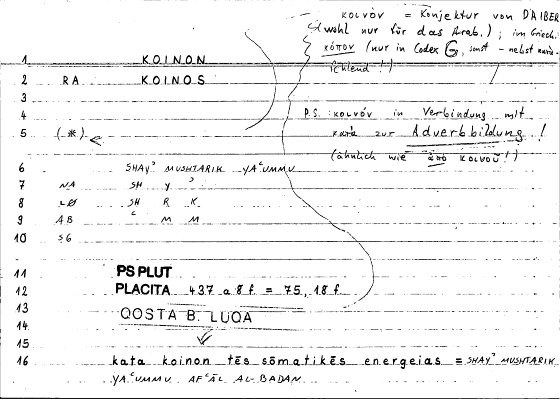 κοινόν = Konjektur von DAIBER
(wohl nur für das Arab.); im Griech.
κόπον (nur in Codex G, sonst - nebst
fehlend!)
1 KOINON
2 RA KOINOS
3
4
P.S. κοινόν in Verbindung mit
κατά zur Adverbbildung!
(ähnlich wie ἀπὸ κοινοῦ!)
5 (.*)
6 SHAYʾ MUSHTARIK YAʿUMMU
7 NA SH Y ʾ
8 LØ SH R K
9 AB ʿ M M
10 SG
11 PS PLUT
12 PLACITA 437 a 8 f. = 75, 18 f
13 QOSTA B. LUQA
14
15
16 kata koinon tēs sōmatikēs energeias = SHAYʾ MUSHTARIK
YAʿUMMU AFʿĀL AL-BADAN